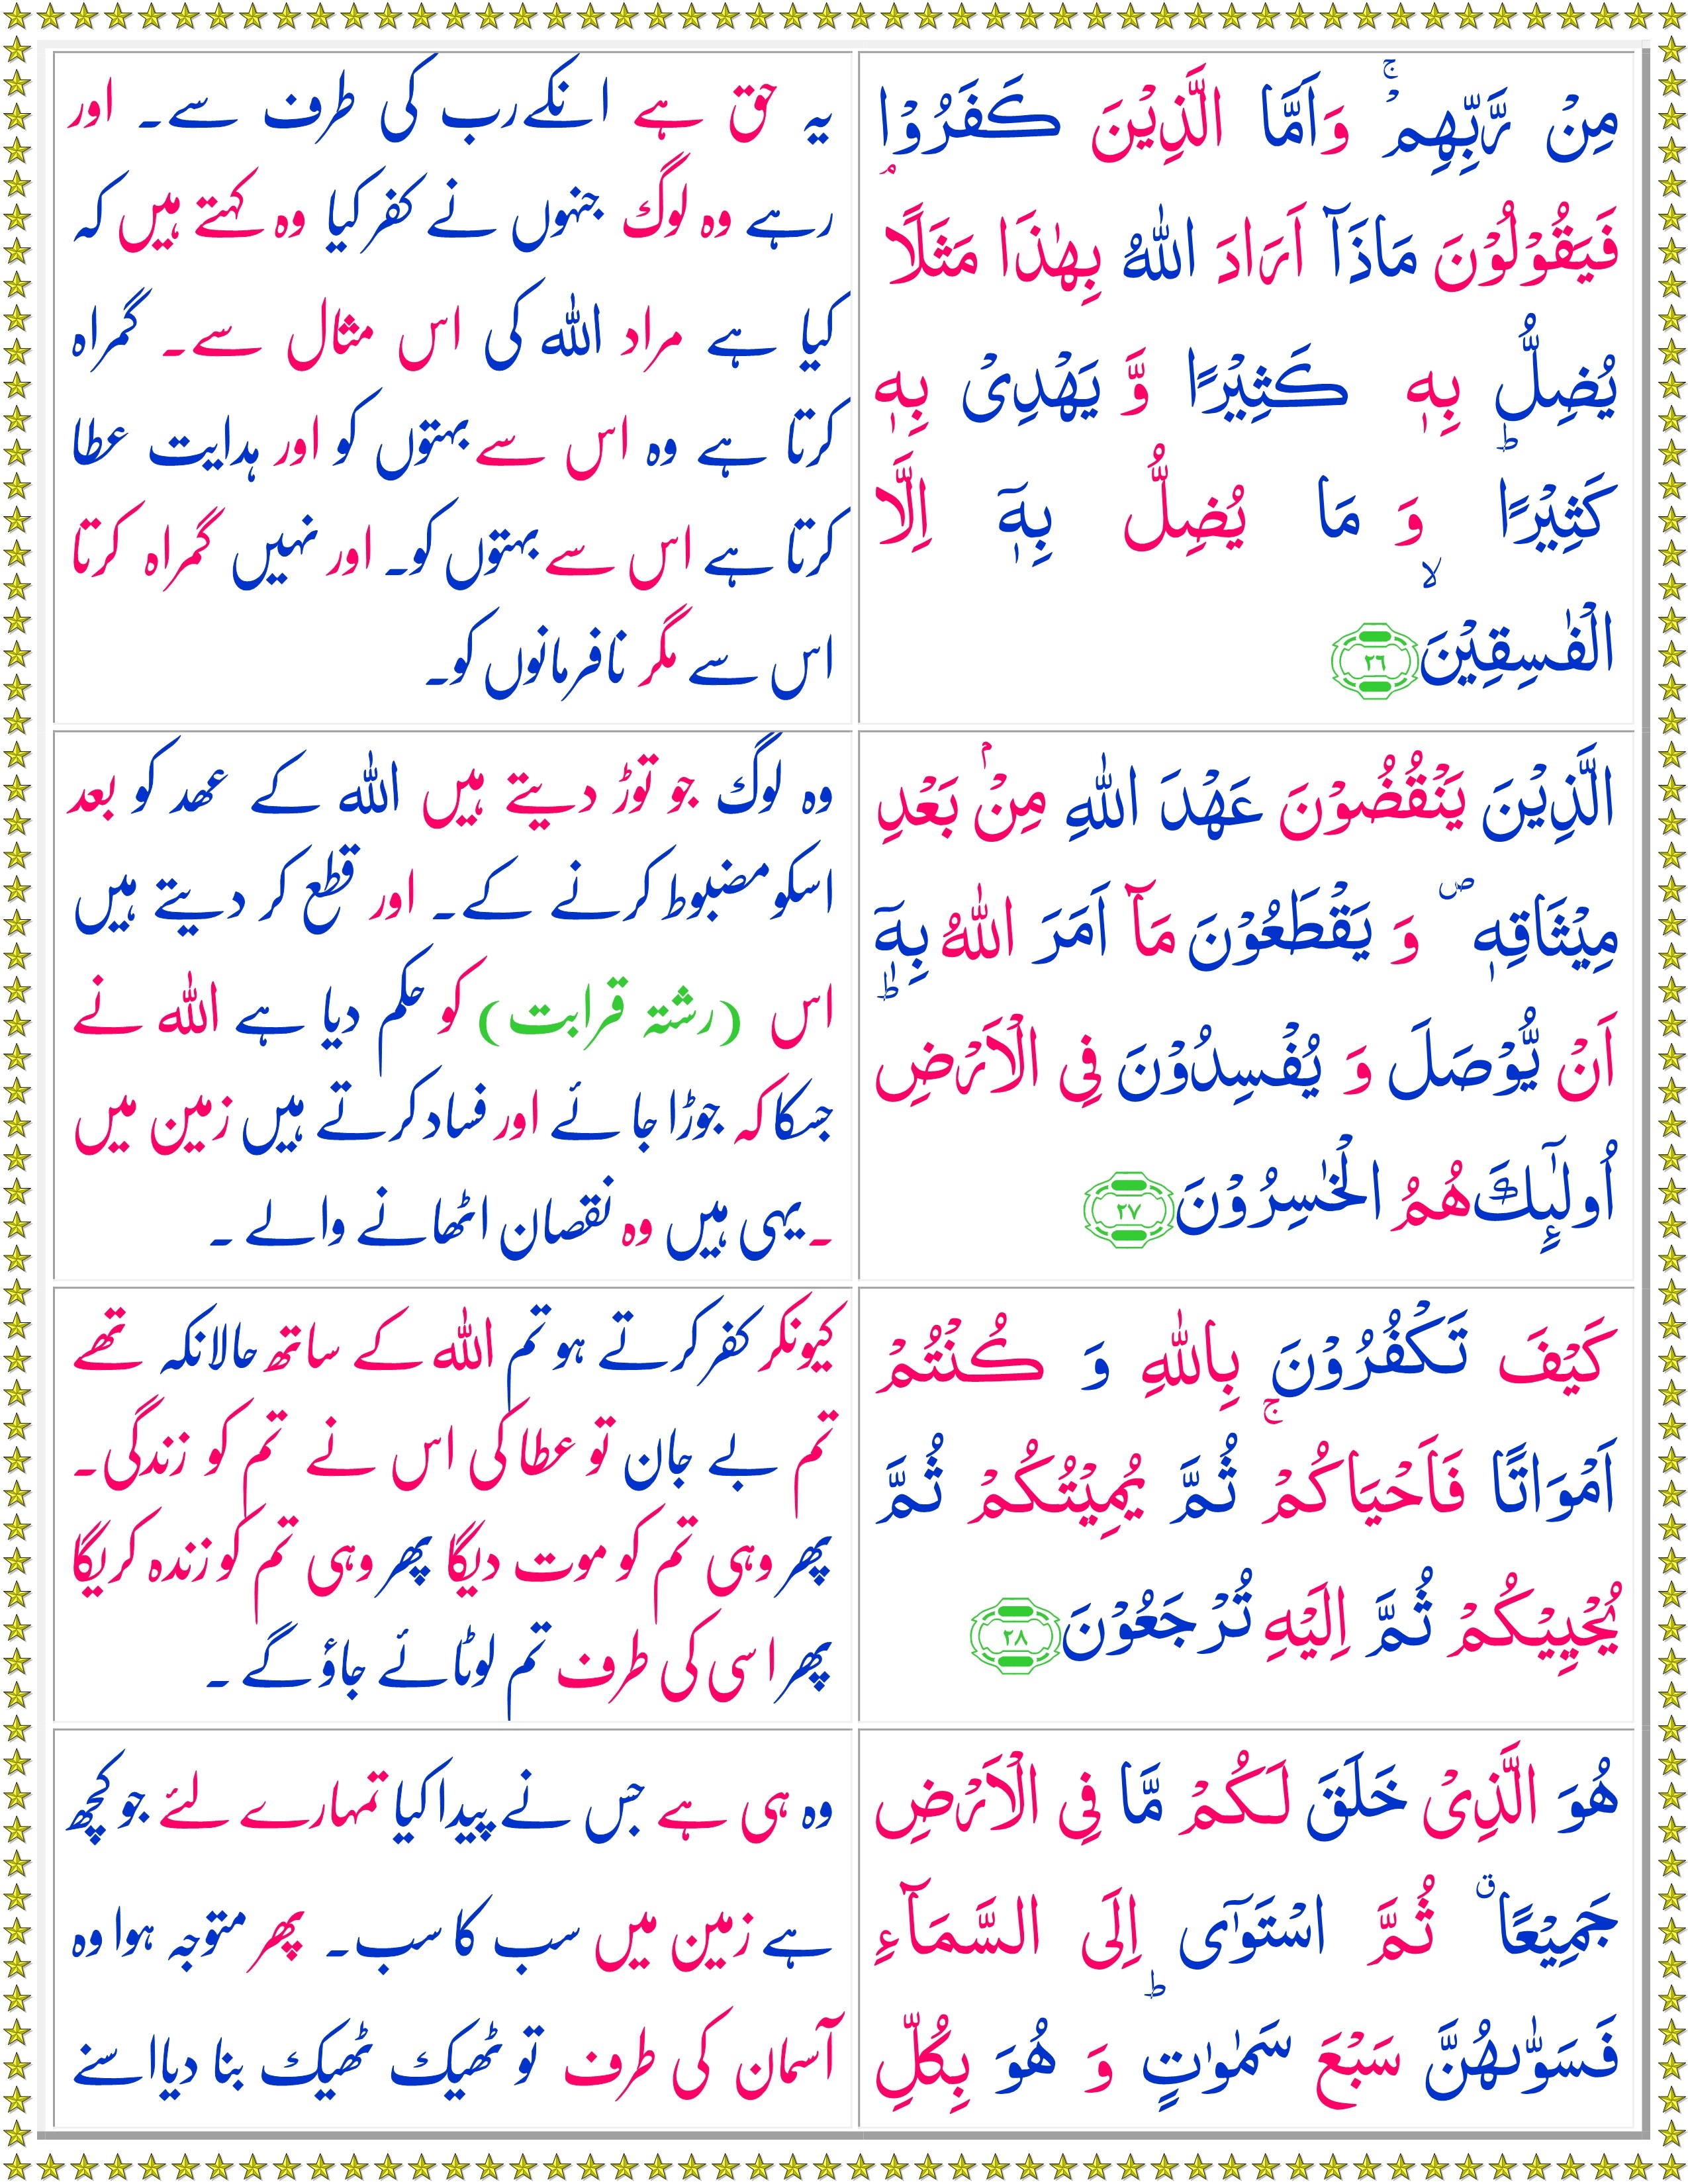 مِنْ رَّبِّهِمْ ۚ وَاَمَّا الَّذِيْنَ كَفَرُوْا
فَيَقُوْلُوْنَ مَاذَآ اَرَادَ اللّٰهُ بِهٰذَا مَثَلًا ۘ
يُضِلُّ بِهٖ كَثِيْرًا وَّ يَهْدِىْ بِهٖ
كَثِيْرًا ؕ وَ مَا يُضِلُّ بِهٖٓ اِلَّا
الْفٰسِقِيْنَ ۙ ﴿٢٦﴾
یہ حق ہے انکے رب کی طرف سے۔ اور
رہے وہ لوگ جنہوں نے کفر کیا وہ کہتے ہیں کہ
کیا ہے مراد اللہ کی اس مثال سے۔ گمراہ
کرتا ہے وہ اس سے بہتوں کو اور ہدایت عطا
کرتا ہے اس سے بہتوں کو۔ اور نہیں گمراہ کرتا
اس سے مگر نافرمانوں کو۔
الَّذِيْنَ يَنْقُضُوْنَ عَهْدَ اللّٰهِ مِنْۢ بَعْدِ
مِيْثَاقِهٖ ۪ وَ يَقْطَعُوْنَ مَآ اَمَرَ اللّٰهُ بِهٖٓ
اَنْ يُّوْصَلَ وَ يُفْسِدُوْنَ فِى الْاَرْضِ ؕ
اُولٰٓٮِٕكَ هُمُ الْخٰسِرُوْنَ ﴿٢٧﴾
وہ لوگ جو توڑ دیتے ہیں اللہ کے عھد کو بعد
اسکو مضبوط کرنے کے۔ اور قطع کر دیتے ہیں
اس (رشتۂ قرابت) کو حکم دیا ہے اللہ نے
جسکا کہ جوڑا جائے اور فساد کرتے ہیں زمین میں
۔ یہی ہیں وہ نقصان اٹھانے والے ۔
كَيْفَ تَكْفُرُوْنَ بِاللّٰهِ وَ كُنْتُمْ
اَمْوَاتًا فَاَحْيَاكُمْ ۚ ثُمَّ يُمِيْتُكُمْ ثُمَّ
يُحْيِيْكُمْ ثُمَّ اِلَيْهِ تُرْجَعُوْنَ ﴿٢٨﴾
کیونکر کفر کرتے ہو تم اللہ کے ساتھ حالانکہ تھے
تم بے جان تو عطا کی اس نے تم کو زندگی۔
پھر وہی تم کو موت دیگا پھر وہی تم کو زندہ کریگا
پھر اسی کی طرف تم لوٹائے جاؤ گے ۔
هُوَ الَّذِىْ خَلَقَ لَكُمْ مَّا فِى الْاَرْضِ
جَمِيْعًا ۗ ثُمَّ اسْتَوٰٓى اِلَى السَّمَآءِ
فَسَوّٰٮهُنَّ سَبْعَ سَمٰوٰتٍ ؕ وَ هُوَ بِكُلِّ
وہ ہی ہے جس نے پیدا کیا تمہارے لئے جو کچھ
ہے زمین میں سب کا سب۔ پھر متوجہ ہوا وہ
آسمان کی طرف تو ٹھیک ٹھیک بنا دیا اسنے